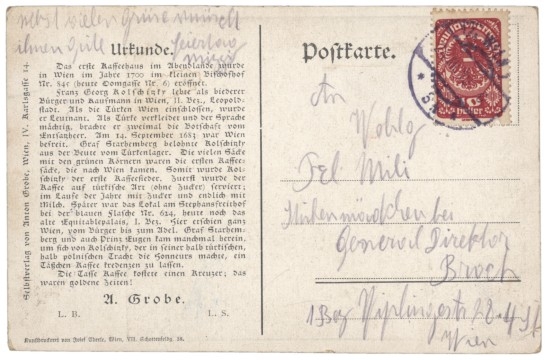 nebst vielen grüse wünscht
ihnen gute Feiertag
Urkunde.
Das erste Kaffeehaus im Abendlande wurde
in Wien im Jahre 1700 im kleinen Bischofhof
Nr. 845 (heute Domgasse Nr. 6) eröffnet.
Franz Georg Kolschinky lebte als biederer
Bürger und Kaufmann in Wien, II. Bez., Leopold-
stadt. Als die Türken Wien einschlossen, wurde
er Leutnant. Als Türke verkleidet und der Sprache
mächtig, brachte er zweimal die Botschaft vom
Entsatzheer. Am 14. September 1683 war Wien
befreit. Graf Starhemberg belohnte Kolschinky
aus der Beute vom Türkenlager. Die vielen Säcke
mit den grünen Körnern waren die ersten Kaffee-
säcke, die nach Wien kamen. Somit wurde Kol-
schinky der erste Kaffeesieder. Zuerst wurde der
Kaffee auf türkische Art (ohne Zucker) serviert;
im Laufe der Jahre mit Zucker und endlich mit
Milch. Später war das Lokal am Stephansfreithof
bei der blauen Flasche Nr. 624, heute noch das
alte Equitablepalais, I. Bez. Hier erschien ganz
Wien, vom Bürger bis zum Adel. Graf Starhem-
berg und auch Prinz Eugen kam manchmal herein,
um sich von Kolschinky, der in seiner halb türkischen,
halb polnischen Tracht die Honneurs machte, ein
Täßchen Kaffee kredenzen zu lassen.
Die Tasse Kaffee kostete einen Kreuzer; das
waren goldene Zeiten!
A. Grobe.
L. B. L. S.
Selbstverlag von Anton Grobe, Wien, IV. Karlsgasse 14.
Kunstdruckerei von Josef Eberle, Wien, VII. Schottenfeldg. 38.
Postkarte.
Heller
An
Wohlg
Frl. Mili
bei
General Direktor
Broch
1 Bez
Wien